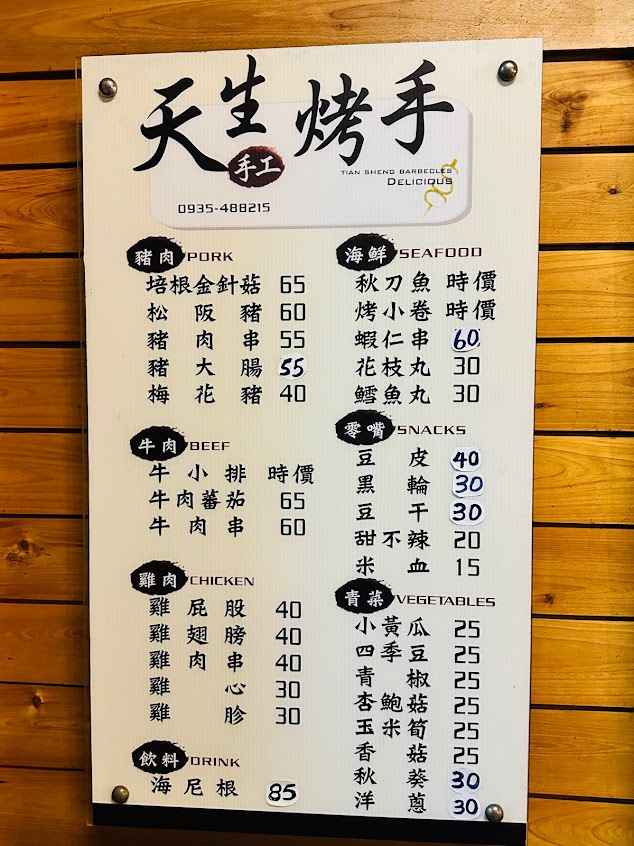 天生烤手
手工
TIAN SHENG BARBECLES
DELICIOUS
0935-488215
豬肉 PORK
培根金針菇 65
松阪豬 60
豬肉串 55
豬大腸 55
梅花豬 40
牛肉 BEEF
牛小排 時價
牛肉蕃茄 65
牛肉串 60
雞肉 CHICKEN
雞屁股 40
雞翅膀 40
雞肉串 40
雞心 30
雞胗 30
飲料 DRINK
海尼根 85
海鮮 SEAFOOD
秋刀魚 時價
烤小卷 時價
蝦仁串 60
花枝丸 30
鱈魚丸 30
零嘴 SNACKS
豆皮 40
黑輪 30
豆干 30
甜不辣 20
米血 15
青菜 VEGETABLES
小黃瓜 25
四季豆 25
青椒 25
杏鮑菇 25
玉米筍 25
香菇 25
秋葵 30
洋蔥 30